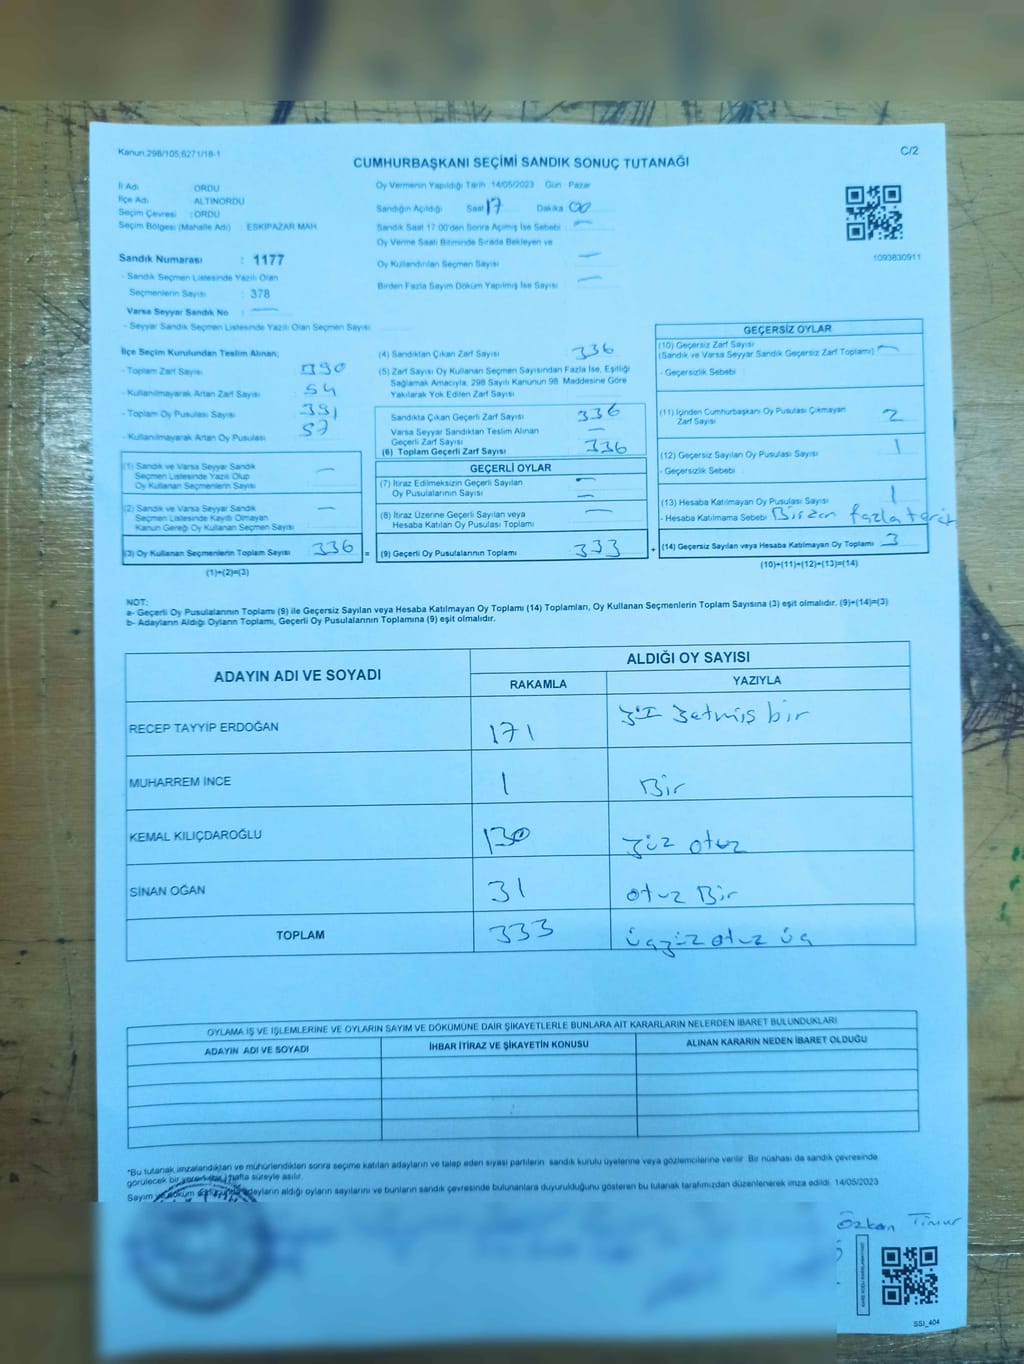 Kanun.298/105;6271/18-1
C/2
CUMHURBAŞKANI SEÇİMİ SANDIK SONUÇ TUTANAĞI
İl Adı ORDU
İlçe Adı ALTINORDU
Seçim Çevresi : ORDU
Seçim Bölgesi (Mahalle Adı) ESKİPAZAR MAH
Sandık Numarası : 1177
- Sandık Seçmen Listesinde Yazılı Olan
Seçmenlerin Sayısı : 378
Varsa Seyyar Sandık No : —
- Seyyar Sandık Seçmen Listesinde Yazılı Olan Seçmen Sayısı
Oy Vermenin Yapıldığı Tarih :14/05/2023 Gün Pazar
Sandığın Açıldığı Saat 17 Dakika 00
Sandık Saat 17:00'den Sonra Açılmış İse Sebebi : —
Oy Verme Saati Bitiminde Sırada Bekleyen ve
Oy Kullandırılan Seçmen Sayısı —
Birden Fazla Sayım Döküm Yapılmış İse Sayısı —
1093830911
İlçe Seçim Kurulundan Teslim Alınan;
- Toplam Zarf Sayısı 390
- Kullanılmayarak Artan Zarf Sayısı 54
- Toplam Oy Pusulası Sayısı 391
- Kullanılmayarak Artan Oy Pusulası 57
(1) Sandık ve Varsa Seyyar Sandık
Seçmen Listesinde Yazılı Olup
Oy Kullanan Seçmenlerin Sayısı —
(2) Sandık ve Varsa Seyyar Sandık
Seçmen Listesinde Kayıtlı Olmayan
Kanun Gereği Oy Kullanan Seçmen Sayısı —
(3) Oy Kullanan Seçmenlerin Toplam Sayısı 336 =
(1)+(2)=(3)
(4) Sandıktan Çıkan Zarf Sayısı 336
(5) Zarf Sayısı Oy Kullanan Seçmen Sayısından Fazla İse, Eşitliği
Sağlamak Amacıyla, 298 Sayılı Kanunun 98. Maddesine Göre
Yakılarak Yok Edilen Zarf Sayısı
Sandıkta Çıkan Geçerli Zarf Sayısı 336
Varsa Seyyar Sandıktan Teslim Alınan
Geçerli Zarf Sayısı —
(6) Toplam Geçerli Zarf Sayısı 336
GEÇERLİ OYLAR
(7) İtiraz Edilmeksizin Geçerli Sayılan
Oy Pusulalarının Sayısı —
(8) İtiraz Üzerine Geçerli Sayılan veya
Hesaba Katılan Oy Pusulası Toplamı —
(9) Geçerli Oy Pusulalarının Toplamı 333 +
GEÇERSİZ OYLAR
(10) Geçersiz Zarf Sayısı
(Sandık ve Varsa Seyyar Sandık Geçersiz Zarf Toplamı) —
- Geçersizlik Sebebi :
(11) İçinden Cumhurbaşkanı Oy Pusulası Çıkmayan
Zarf Sayısı 2
(12) Geçersiz Sayılan Oy Pusulası Sayısı 1
- Geçersizlik Sebebi :
(13) Hesaba Katılmayan Oy Pusulası Sayısı 1
- Hesaba Katılmama Sebebi : fazla
(14) Geçersiz Sayılan veya Hesaba Katılmayan Oy Toplamı 3
(10)+(11)+(12)+(13)=(14)
NOT:
a- Geçerli Oy Pusulalarının Toplamı (9) ile Geçersiz Sayılan veya Hesaba Katılmayan Oy Toplamı (14) Toplamları, Oy Kullanan Seçmenlerin Toplam Sayısına (3) eşit olmalıdır. (9)+(14)=(3)
b- Adayların Aldığı Oyların Toplamı, Geçerli Oy Pusulalarının Toplamına (9) eşit olmalıdır.
ADAYIN ADI VE SOYADI ALDIĞI OY SAYISI
RAKAMLA YAZIYLA
RECEP TAYYİP ERDOĞAN 171 yüz yetmiş bir
MUHARREM İNCE 1 Bir
KEMAL KILIÇDAROĞLU 130 yüz otuz
SİNAN OĞAN 31 otuz Bir
TOPLAM 333 üçyüz otuz üç
OYLAMA İŞ VE İŞLEMLERİNE VE OYLARIN SAYIM VE DÖKÜMÜNE DAİR ŞİKAYETLERLE BUNLARA AİT KARARLARIN NELERDEN İBARET BULUNDUKLARI
ADAYIN ADI VE SOYADI İHBAR İTİRAZ VE ŞİKAYETİN KONUSU ALINAN KARARIN NEDEN İBARET OLDUĞU
*Bu tutanak imzalandıktan ve mühürlendikten sonra seçime katılan adayların ve talep eden siyasi partilerin sandık kurulu üyelerine veya gözlemcilerine verilir. Bir nüshası da sandık çevresinde
görülecek bir yere 1 (bir) hafta süreyle asılır.
Sayım ve döküm adayların aldığı oyların sayılarını ve bunların sandık çevresinde bulunanlara duyurulduğunu gösteren bu tutanak tarafımızdan düzenlenerek imza edildi. 14/05/2023
Özkan Timur
SSI_404